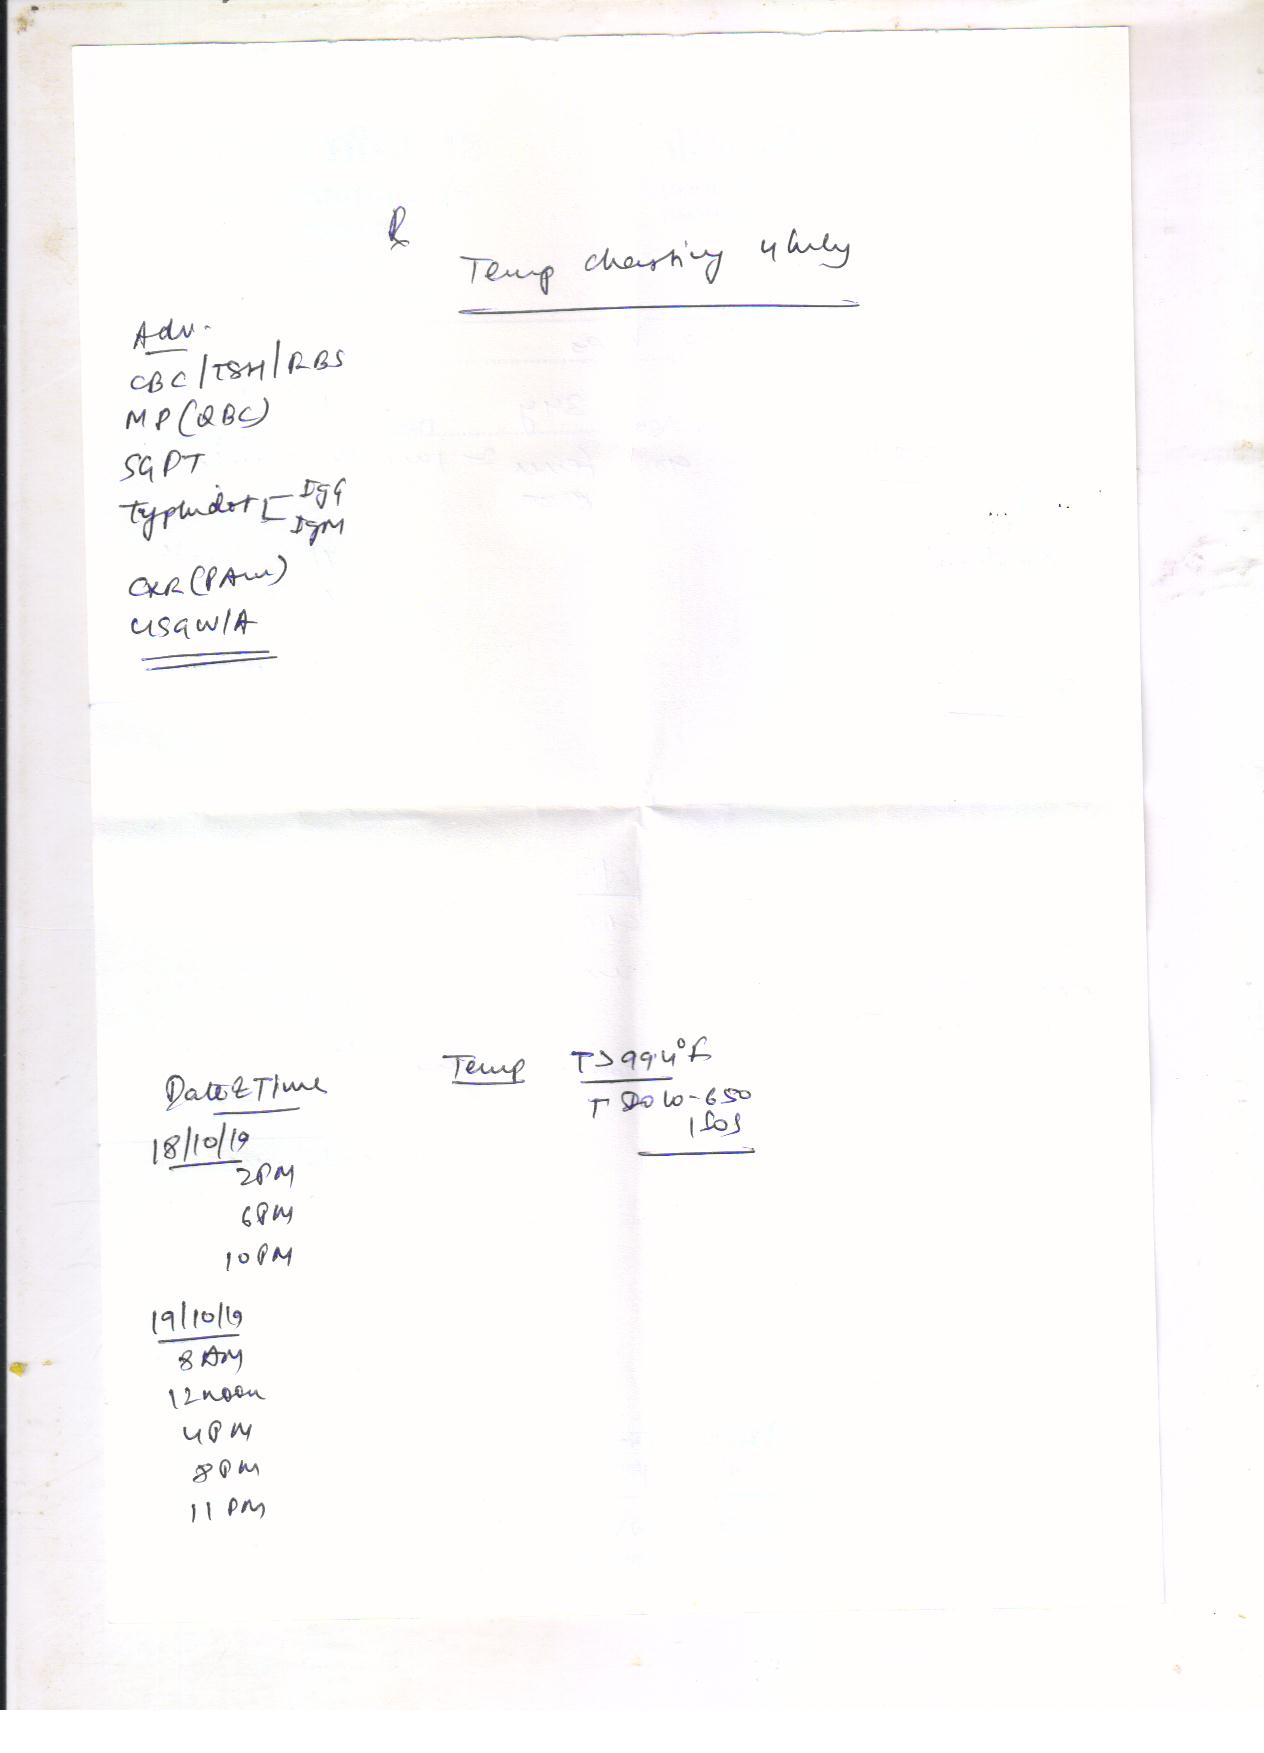 ℞
Temp charting 4 hrly
Adv.
CBC/TSH/RBS
MP(QBC)
SGPT
Typhidot [ IgG
IgM
CXR(PAvw)
USGW/A
Date & Time Temp T>99.4°F
T Dolo-650
1 SOS
18/10/19
2PM
6PM
10PM
19/10/19
8AM
12noon
4PM
8PM
11PM